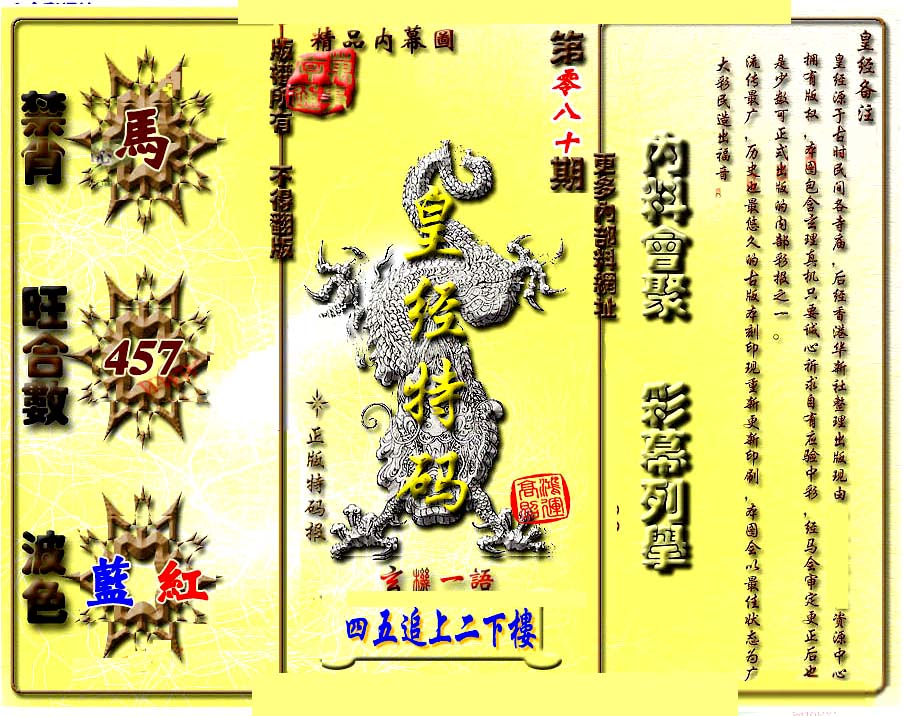 精品内幕圖
版權所有 不得翻版
第零八十期
更多內部料網址
禁肖
馬
旺合數
457
波色
藍 紅
皇经特码
正版特码报
鴻運高照
玄機一語
四五追上二下樓
内料會聚
彩幕列舉
皇经备注
皇经源于古时民间各寺庙，后经香港华新社整理出版现由 资源中心
拥有版权，本图包含玄理真机只要诚心祈求自有应验中彩，经马会审定更正后也
是少数可正式出版的内部彩报之一。
流传最广，历史也最悠久的古版本刻印现重新更新印刷，本图会以最佳状态为广
大彩民造出福音